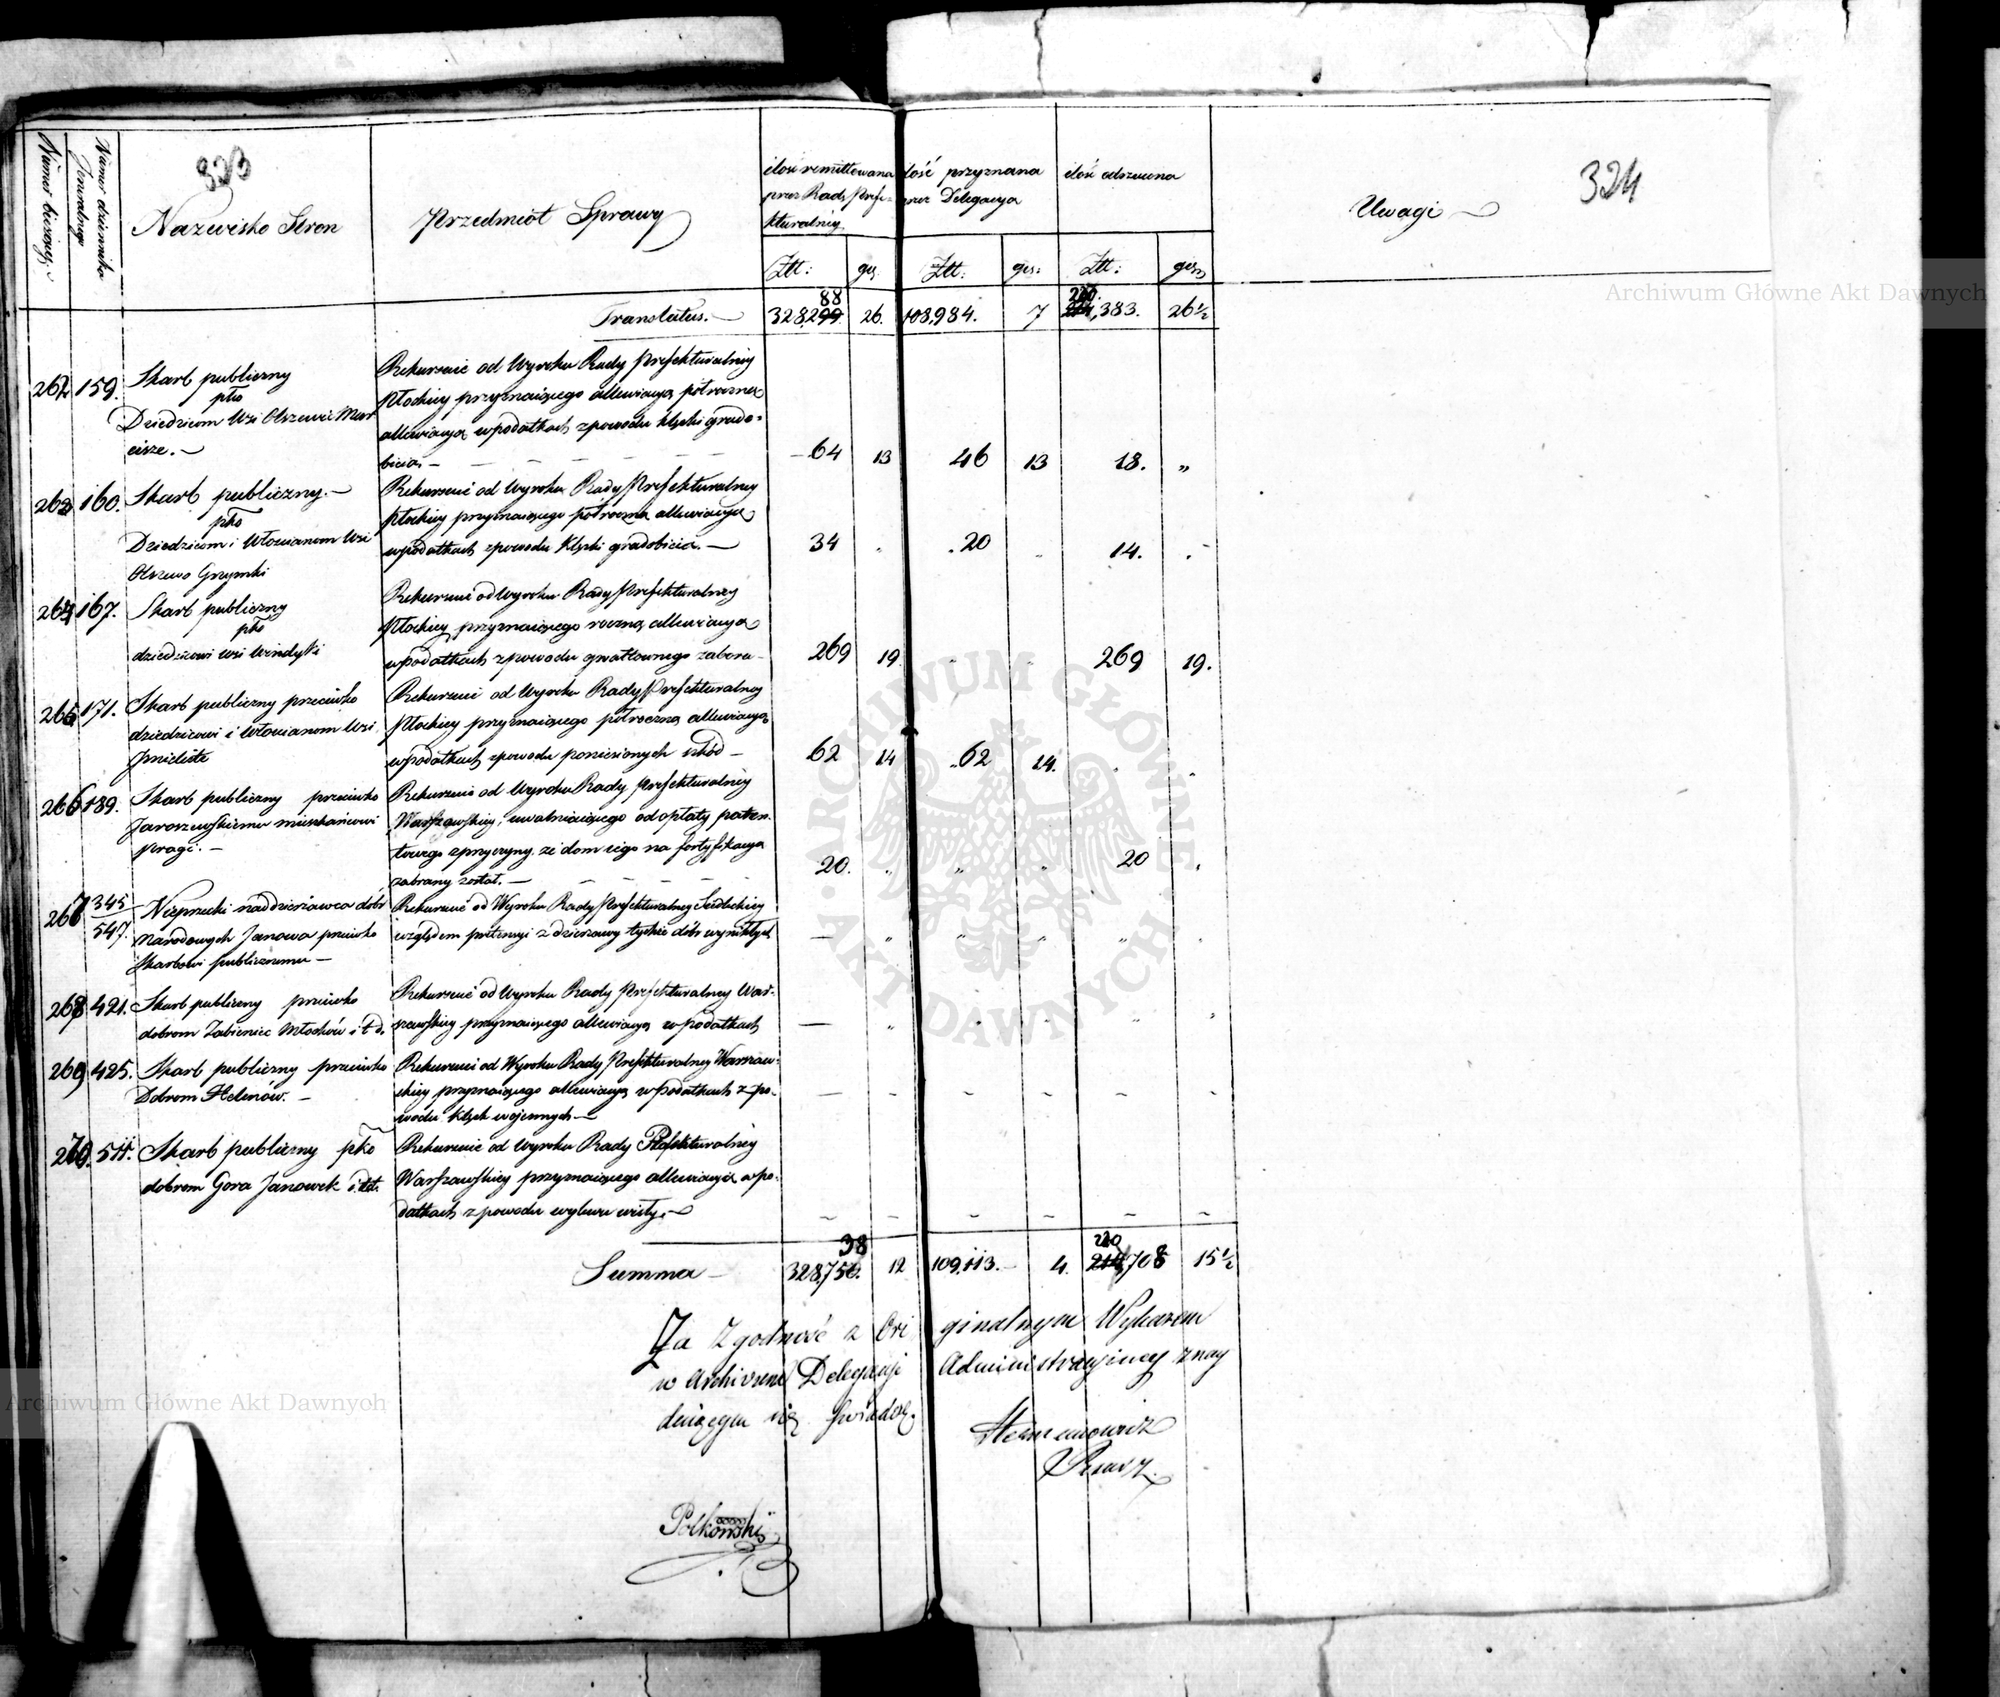 323
324
Numer bieżący.
Numer dziennika Jeneralnego
Nazwisko Stron
Przedmiot Sprawy
ilość remittowana przez Radę Prefekturalną
ilość przyznana przez Delegacyą
ilość odrzucona
Uwagi
Złt: gr. Złt: gr: Złt: gr
Translatus. 328,299 88 26. 108,984. 7 220. ,383. 26½
262 159. Skarb publiczny
pko
Dziedzicom Wsi Olszewic Mar
cisze.
Rekursuie od Wyroku Rady Prefekturalney
Płockiey przyznaiącego allewiacyą półroczną
allewiacyą w podatkach z powodu klęski grado-
bicia
64 13 46 13 18. „
263 160. Skarb publiczny.
pko
Dziedzicom i Włościanom Wsi
Olszewo Grzymki
Rekursuie od Wyroku Rady Prefekturalney
Płockiey przyznaiącego półroczną allewiacyą
w podatkach z powodu Klęski gradobicia.
34 20 14.
264 167. Skarb publiczny
pko
dziedzicowi wsi Windyki
Rekursuie od Wyroku Rady Prefekturalney
Płockiey przyznaiącego roczną allewiacyą
w podatkach z powodu gwałtownego zaboru
269 19 269 19.
265 171. Skarb publiczny przeciwko
dziedzicowi i Włościanom Wsi
Rekursuie od Wyroku Rady Prefekturalney
Płockiey przyznaiącego półroczną allewiacyą
w podatkach z powodu poniesionych szkód
62 14 62 14.
266 189. Skarb publiczny przeciwko
Jaroszewskiemu mieszkańcowi
pragi.
Rekursuie od Wyroku Rady Prefekturalney
Warszawskiey, uwalniaiącego od opłaty paten-
towego z przyczyny, że dom iego na fortyfikacyą
zabrany został.
20. 20
267 345/547. Nieprzecki naddzierżawca dóbr
Narodowych Janowa przeciwko
Skarbowi publicznemu
Rekursuie od Wyroku Rady Prefekturalney Siedleckiey
względem pretensyi z dzierżawy tychże dóbr wynikłych
268 421. Skarb publiczny przeciwko
dobrom Żabieniec Młochów i t d.
Rekursuie od Wyroku Rady Prefekturalney War-
szawskiey przyznaiącego allewiacyą w podatkach
269 425. Skarb publiczny przeciwko
Dobrom Helenów.
Rekursuie od Wyroku Rady Prefekturalney Warszaw-
skiey przyznaiącego allewiacyą w podatkach z po-
wodu klęsk wojennych
270. 511. Skarb publiczny pko
dobrom Gora Janowek i t d.
Rekursuie od Wyroku Rady Prefekturalney
Warszawskiey przyznaiącego allewiacyą w po-
datkach z powodu wylewu wisły.
Summa 328,750. 38 12 109,113. 4. 220 214,708 15½
Za Zgodność z Originalnym Wykazem
w Archiwum Delegacyi Administracyiney znay
duiącym się świadczę
Polkowski
Archiwum Główne Akt Dawnych
Archiwum Główne Akt Dawnych
ARCHIWUM GŁÓWNE AKT DAWNYCH